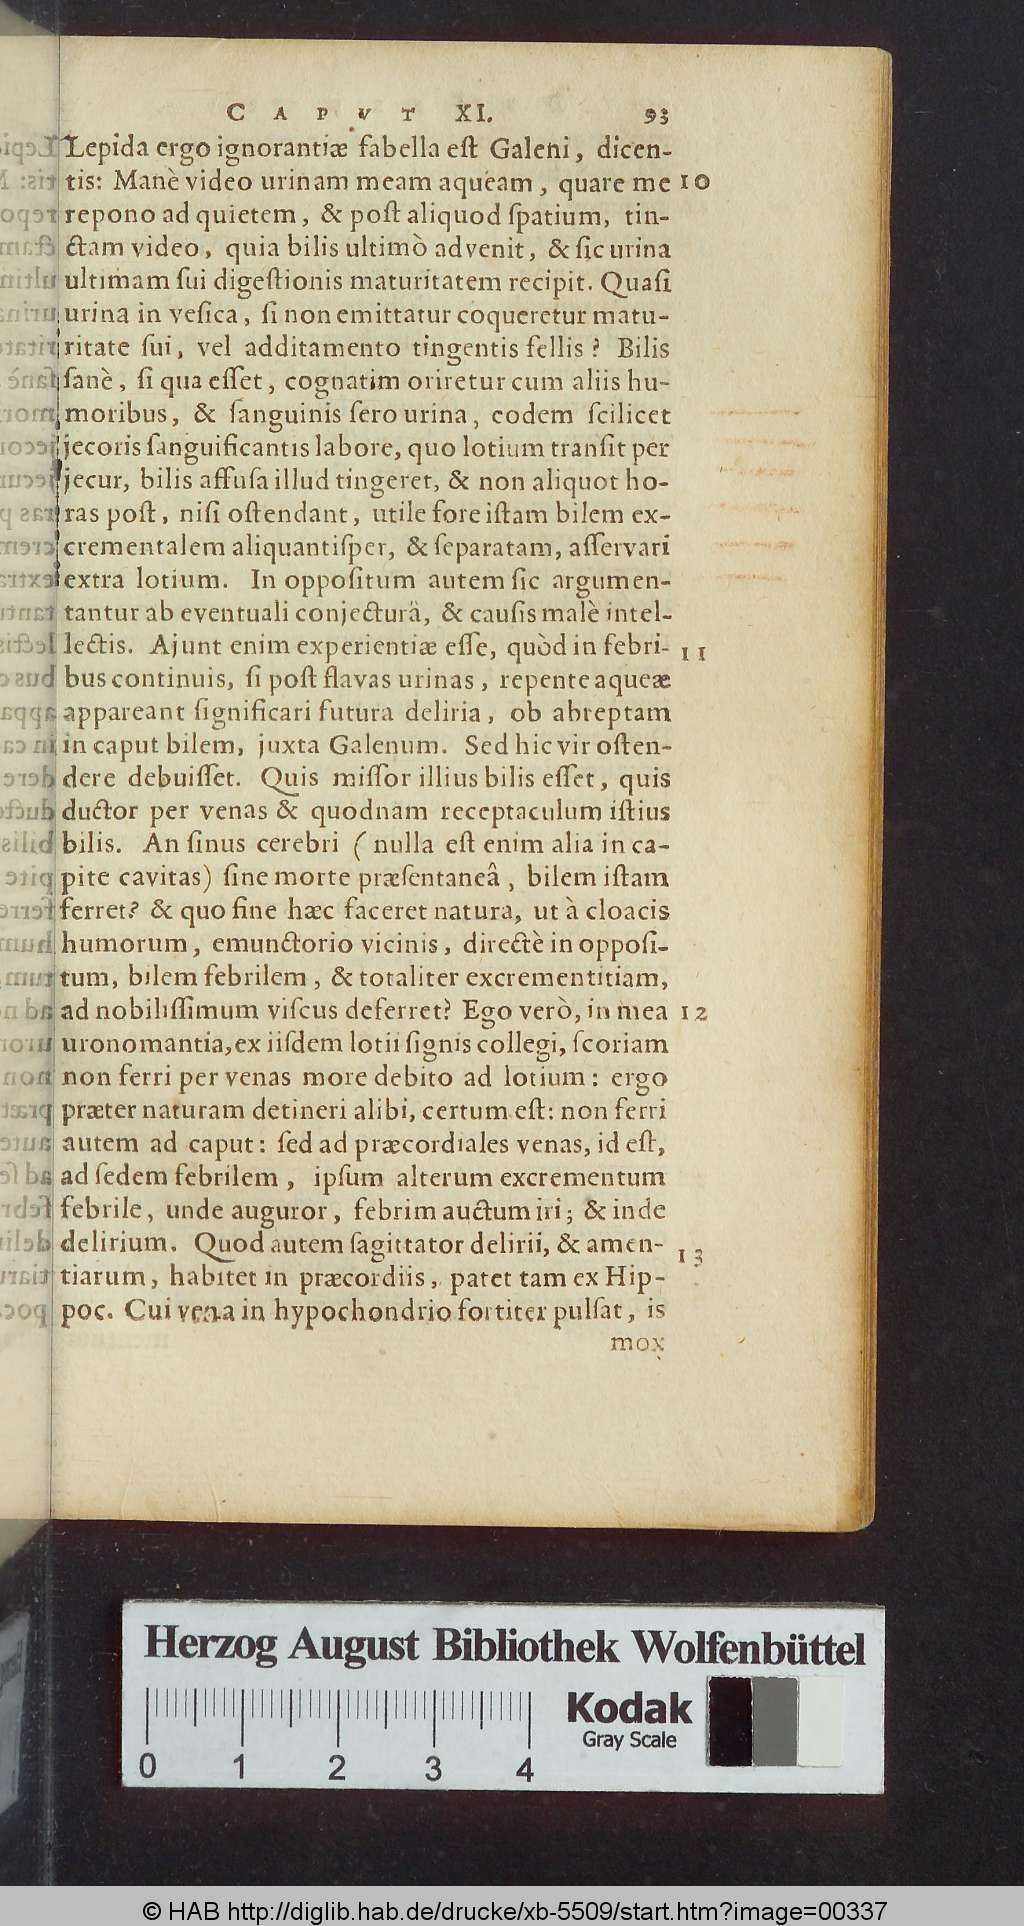 CAPVT XI. 93
Lepida ergo ignorantiæ fabella eſt Galeni, dicen-
tis: Manè video urinam meam aqueam, quare me 10
repono ad quietem, & poſt aliquod ſpatium, tin-
ctam video, quia bilis ultimò advenit, & ſic urina
ultimam ſui digeſtionis maturitatem recipit. Quaſi
urina in veſica, ſi non emittatur coqueretur matu-
ritate ſui, vel additamento tingentis fellis? Bilis
ſanè, ſi qua eſſet, cognatim oriretur cum aliis hu-
moribus, & ſanguinis ſero urina, eodem ſcilicet
jecoris ſanguificantis labore, quo lotium tranſit per
jecur, bilis affuſa illud tingeret, & non aliquot ho-
ras poſt, niſi oſtendant, utile fore iſtam bilem ex-
crementalem aliquantiſper, & ſeparatam, aſſervari
extra lotium. In oppoſitum autem ſic argumen-
tantur ab eventuali conjecturâ, & cauſis malè intel-
lectis. Ajunt enim experientiæ eſſe, quòd in febri- 11
bus continuis, ſi poſt flavas urinas, repente aqueæ
appareant ſignificari futura deliria, ob abreptam
in caput bilem, juxta Galenum. Sed hic vir oſten-
dere debuiſſet. Quis miſſor illius bilis eſſet, quis
ductor per venas & quodnam receptaculum iſtius
bilis. An ſinus cerebri (nulla eſt enim alia in ca-
pite cavitas) ſine morte præſentaneâ, bilem iſtam
ferret? & quo fine hæc faceret natura, ut à cloacis
humorum, emunctorio vicinis, directè in oppoſi-
tum, bilem febrilem, & totaliter excrementitiam,
ad nobiliſſimum viſcus deferret? Ego verò, in mea 12
uronomantia, ex iiſdem lotii ſignis collegi, ſcoriam
non ferri per venas more debito ad lotium: ergo
præter naturam detineri alibi, certum eſt: non ferri
autem ad caput: ſed ad præcordiales venas, id eſt,
ad ſedem febrilem, ipſum alterum excrementum
febrile, unde auguror, febrim auctum iri; & inde
delirium. Quod autem ſagittator delirii, & amen- 13
tiarum, habitet in præcordiis, patet tam ex Hip-
poc. Cui vena in hypochondrio fortiter pulſat, is
mox
Herzog August Bibliothek Wolfenbüttel
Kodak
Gray Scale
0 1 2 3 4
© HAB http://diglib.hab.de/drucke/xb-5509/start.htm?image=00337